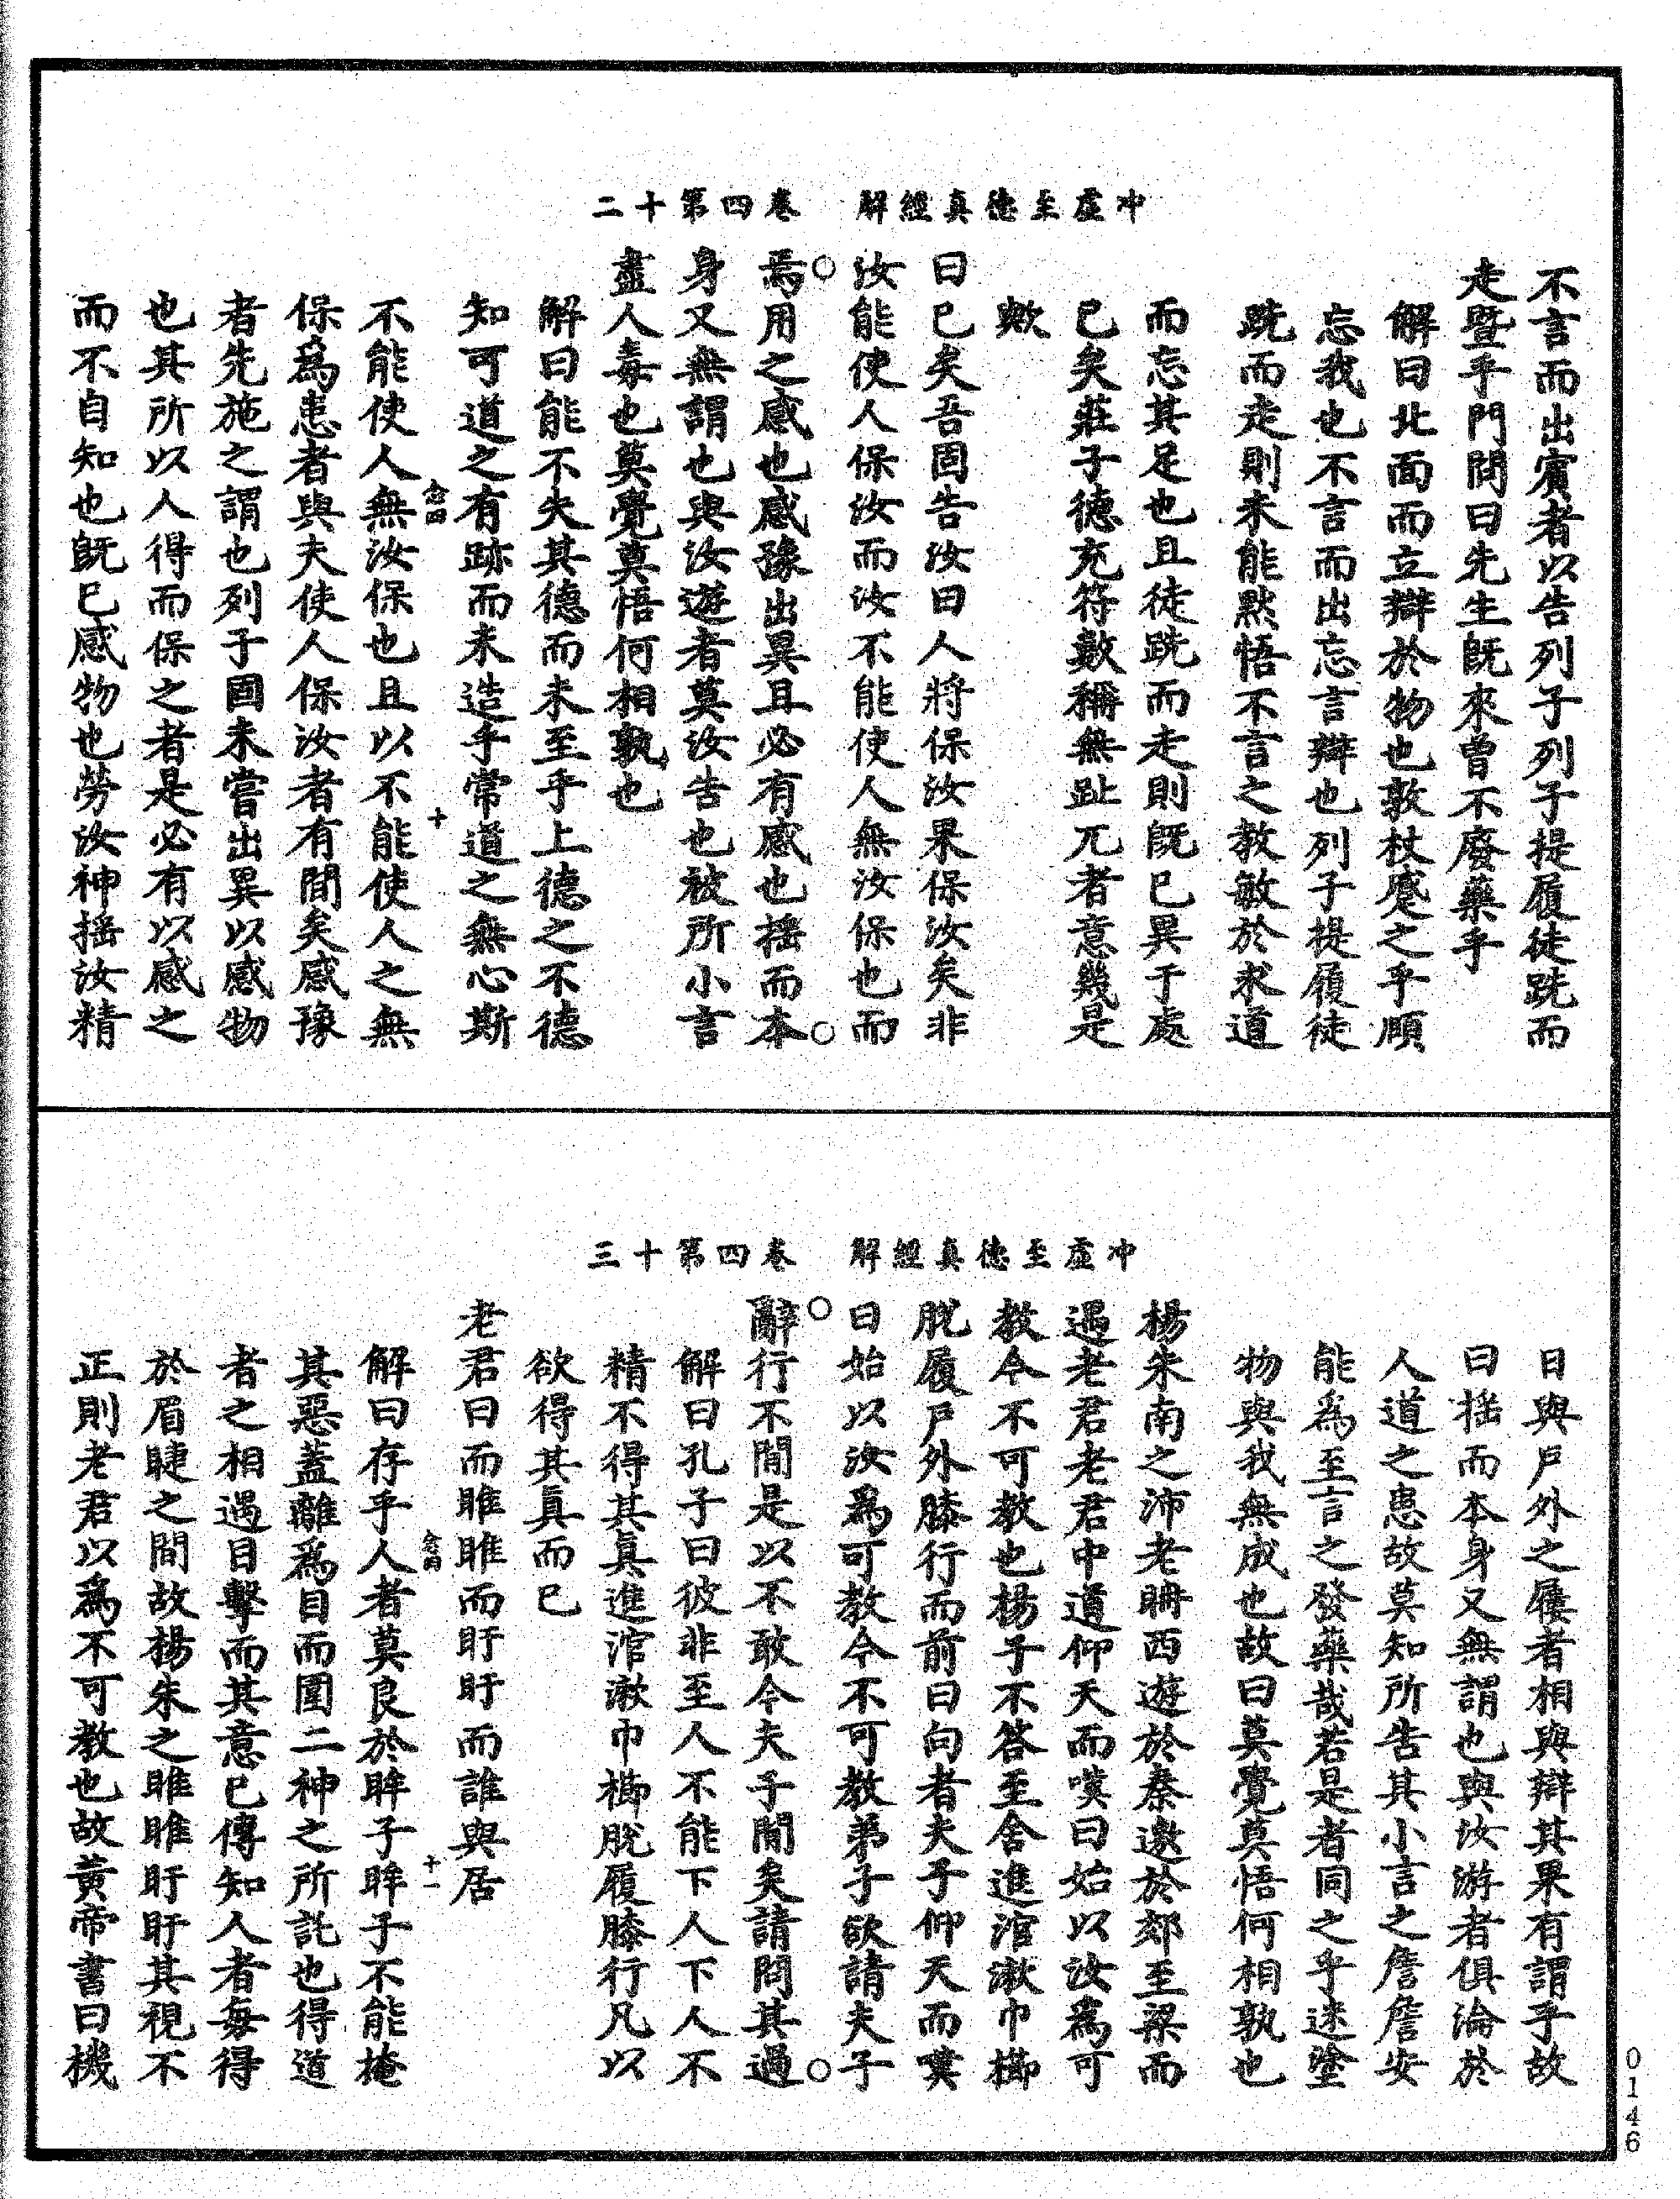 冲虛至德真經解　卷四第十二
不言而出賓者以告列子列子提履徒跣而
走暨乎門問曰先生旣來曾不廢藥乎
解曰北面而立辯於物也敦杖蹙之乎頤
忘我也不言而出忘言辯也列子提履徒
跣而走則未能默悟不言之教敏於求道
而忘其足也且徒跣而走則旣已異于處
已矣莊子德充符數稱無趾兀者意幾是
歟
曰已矣吾固告汝曰人將保汝果保汝矣非
汝能使人保汝而汝不能使人無汝保也而
焉用之感也感豫出異且必有感也搖而本
身又無謂也與汝遊者莫汝告也彼所小言
盡人毒也莫覺莫悟何相孰也
解曰能不失其德而未至乎上德之不德
知可道之有跡而未造乎常道之無心斯
不能使人無汝保也且以不能使人之無
保爲患者與夫使人保汝者有間矣感豫
者先施之謂也列子固未嘗出異以感物
也其所以人得而保之者是必有以感之
而不自知也旣已感物也勞汝神搖汝精
念四
十
冲虛至德真經解　卷四第十三
日與戶外之屨者相與辯其果有謂乎故
曰搖而本身又無謂也與汝游者俱淪於
人道之患故莫知所告其小言之詹詹安
能爲至言之發藥哉若是者同之乎迷塗
物與我無成也故曰莫覺莫悟何相孰也
楊朱南之沛老聃西遊於秦邀於郊至梁而
遇老君老君中道仰天而嘆曰始以汝爲可
教今不可教也楊子不答至舍進涫漱巾櫛
脫履戶外膝行而前曰向者夫子仰天而嘆
曰始以汝爲可教今不可教弟子欲請夫子
辭行不閒是以不敢今夫子閒矣請問其過
解曰孔子曰彼非至人不能下人下人不
精不得其真進涫漱巾櫛脫履膝行凡以
欲得其真而已
老君曰而睢睢而盱盱而誰與居
解曰存乎人者莫良於眸子眸子不能掩
其惡蓋離爲目而圍二神之所託也得道
者之相遇目擊而其意已傳知人者每得
於眉睫之間故楊朱之睢睢盱盱其視不
正則老君以爲不可教也故黃帝書曰機
念四
十一
0146